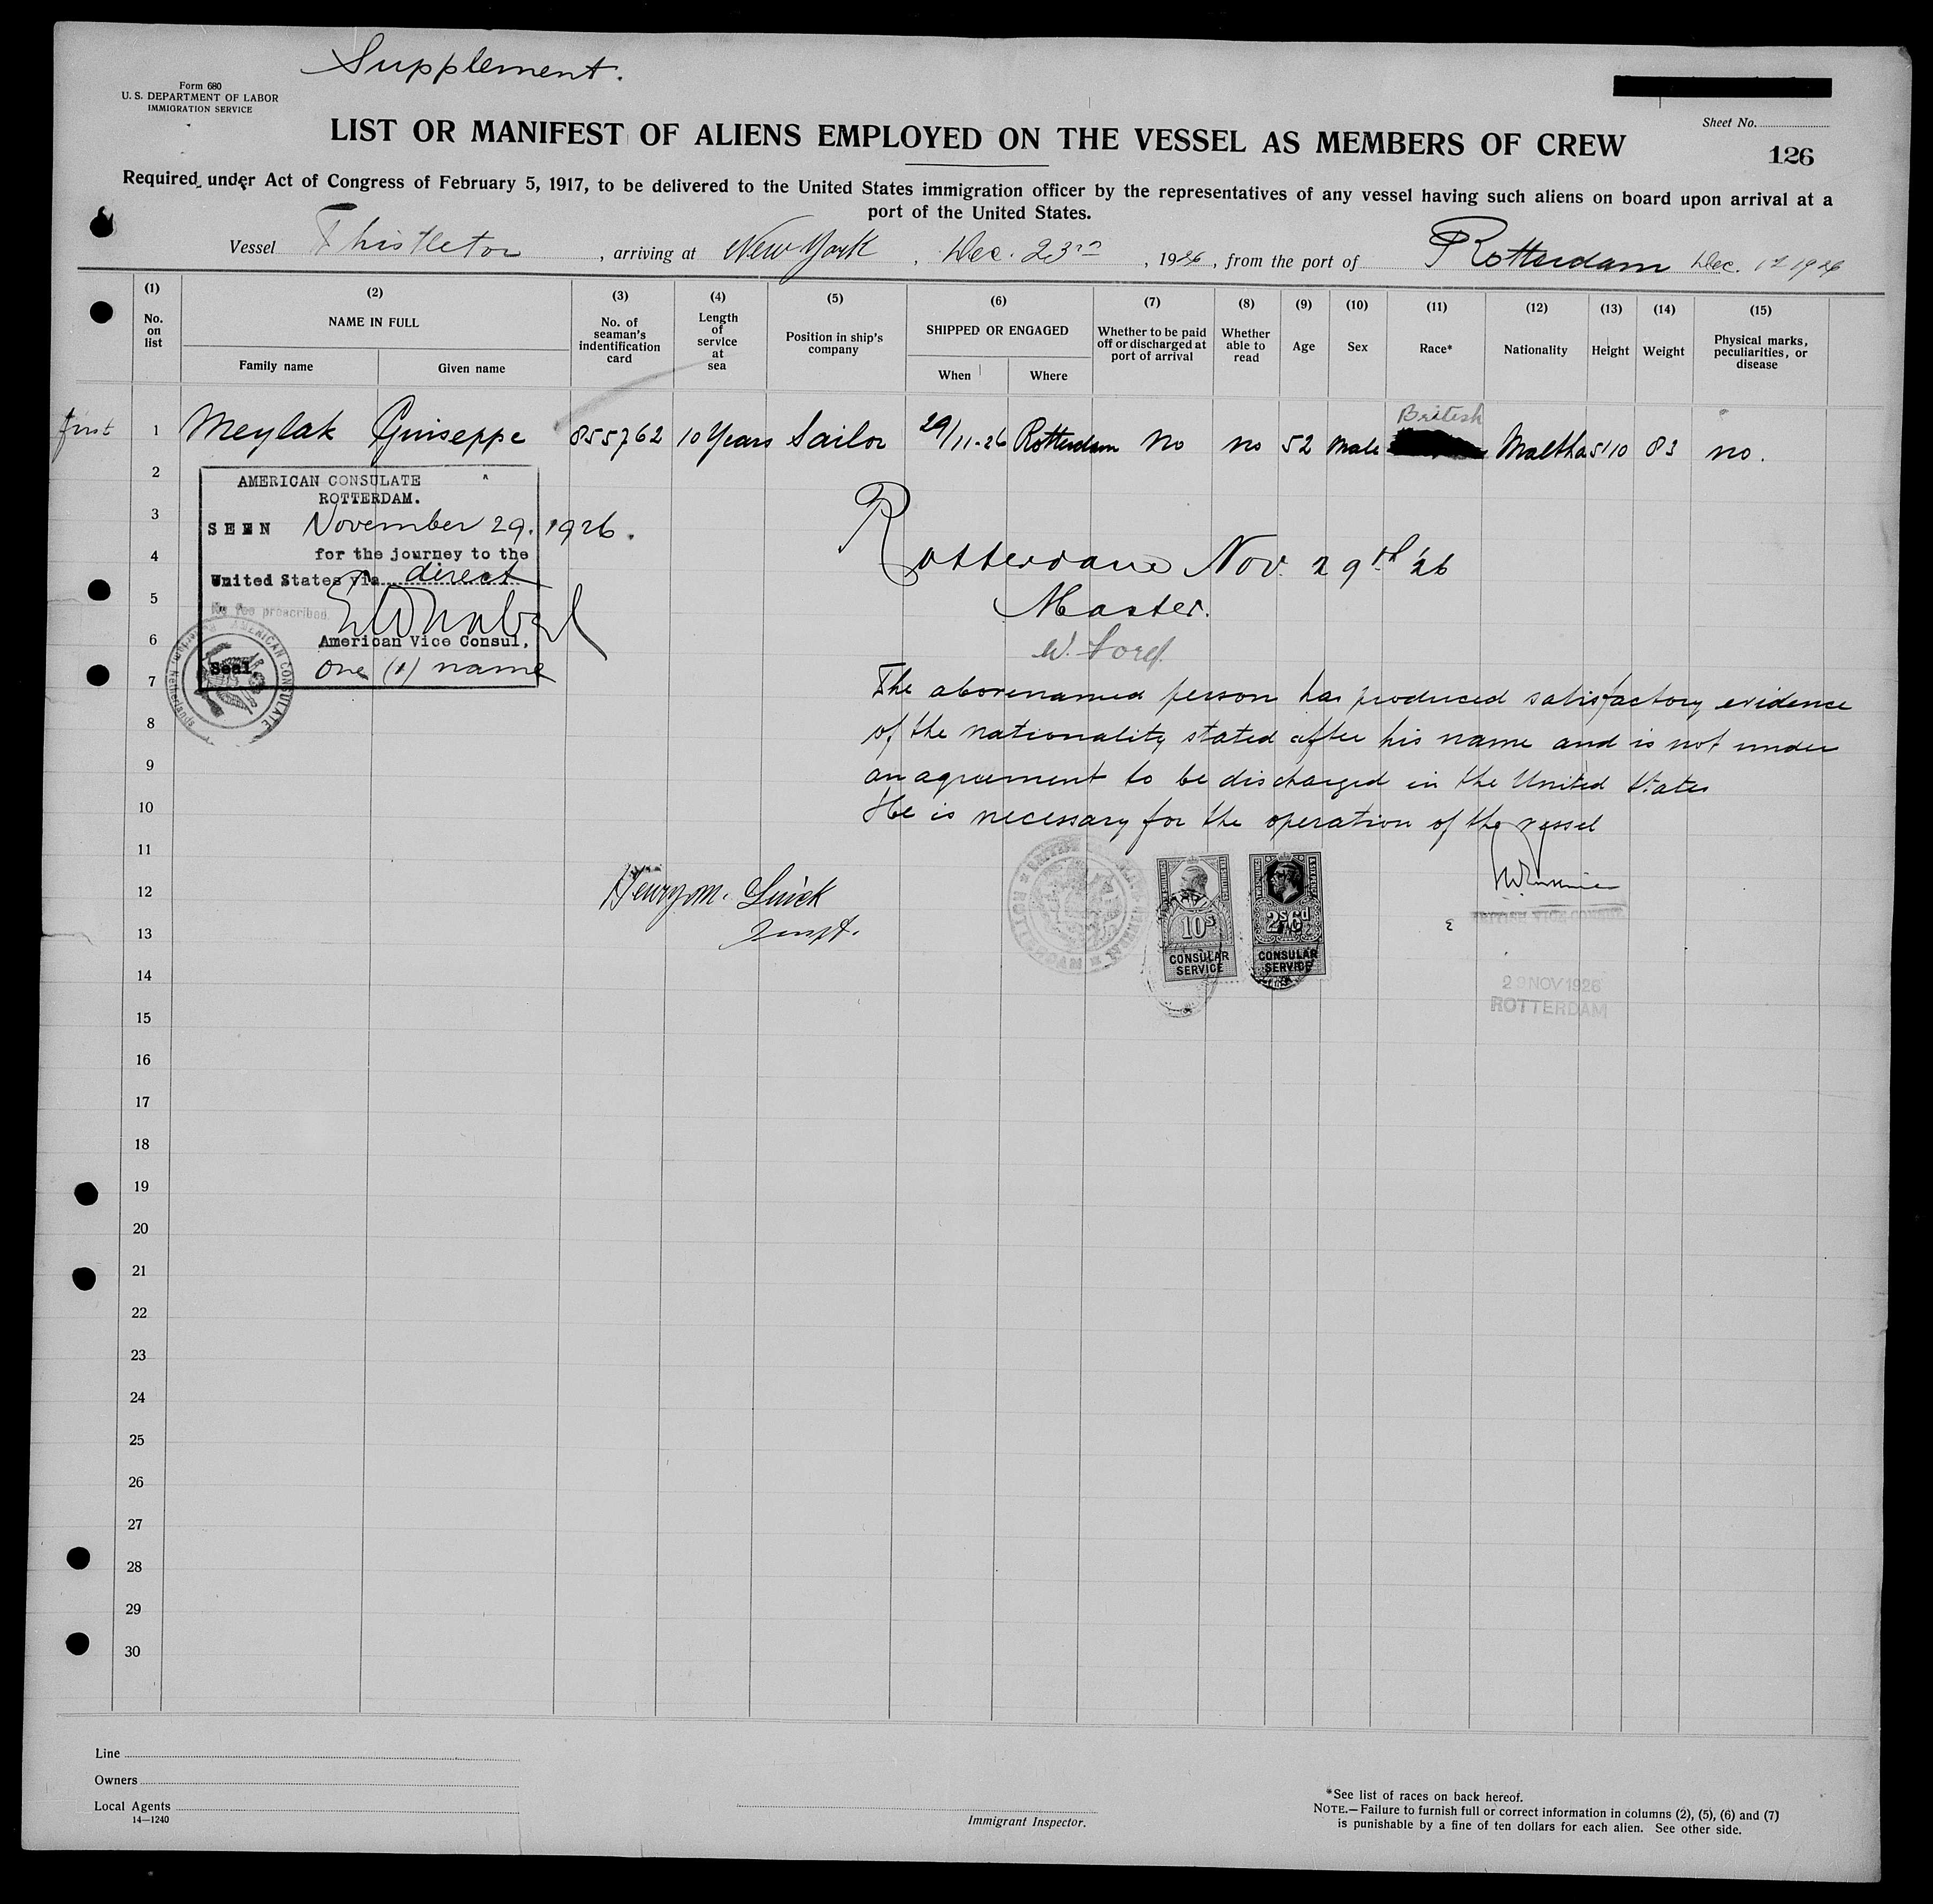 Supplement.
Form 680
U. S. DEPARTMENT OF LABOR
IMMIGRATION SERVICE
Sheet No.
LIST OR MANIFEST OF ALIENS EMPLOYED ON THE VESSEL AS MEMBERS OF CREW
126
Required under Act of Congress of February 5, 1917, to be delivered to the United States immigration officer by the representatives of any vessel having such aliens on board upon arrival at a
port of the United States.
Vessel Thistleton, arriving at New York, Dec. 23rd, 1926, from the port of Rotterdam Dec. 1926
(1) (2) (3) (4) (5) (6) (7) (8) (9) (10) (11) (12) (13) (14) (15)
No. on list
NAME IN FULL
Family name
Given name
No. of seaman's indentification card
Length of service at sea
Position in ship's company
SHIPPED OR ENGAGED
When
Where
Whether to be paid off or discharged at port of arrival
Whether able to read
Age
Sex
Race*
Nationality
Height
Weight
Physical marks, peculiarities, or disease
British
first 1 Meylak Guiseppe 855762 10 Years Sailor 29/11-26 Rotterdam no no 52 Male Maltha 5'10 83 no.
2
AMERICAN CONSULATE
ROTTERDAM.
3
SEEN November 29. 1926.
for the journey to the
4
United States via direct
Rotterdam Nov. 29th '26
5
No fee prescribed
Master.
6
American Vice Consul,
W. Lord.
Seal. one (1) name
AMERICAN CONSULATE Rotterdam Netherlands
7
The abovenamed person has produced satisfactory evidence
8
of the nationality stated after his name and is not under
9
an agreement to be discharged in the United States
10
He is necessary for the operation of the vessel
11
12
Henry M. Quick
BRITISH VICE-CONSUL
13
Inspt.
10s
CONSULAR
SERVICE
2s6d
CONSULAR
SERVICE
14
29 NOV 1926
ROTTERDAM
15
16
17
18
19
20
21
22
23
24
25
26
27
28
29
30
Line
Owners
Local Agents
14—1240
Immigrant Inspector.
*See list of races on back hereof.
NOTE.—Failure to furnish full or correct information in columns (2), (5), (6) and (7)
is punishable by a fine of ten dollars for each alien. See other side.